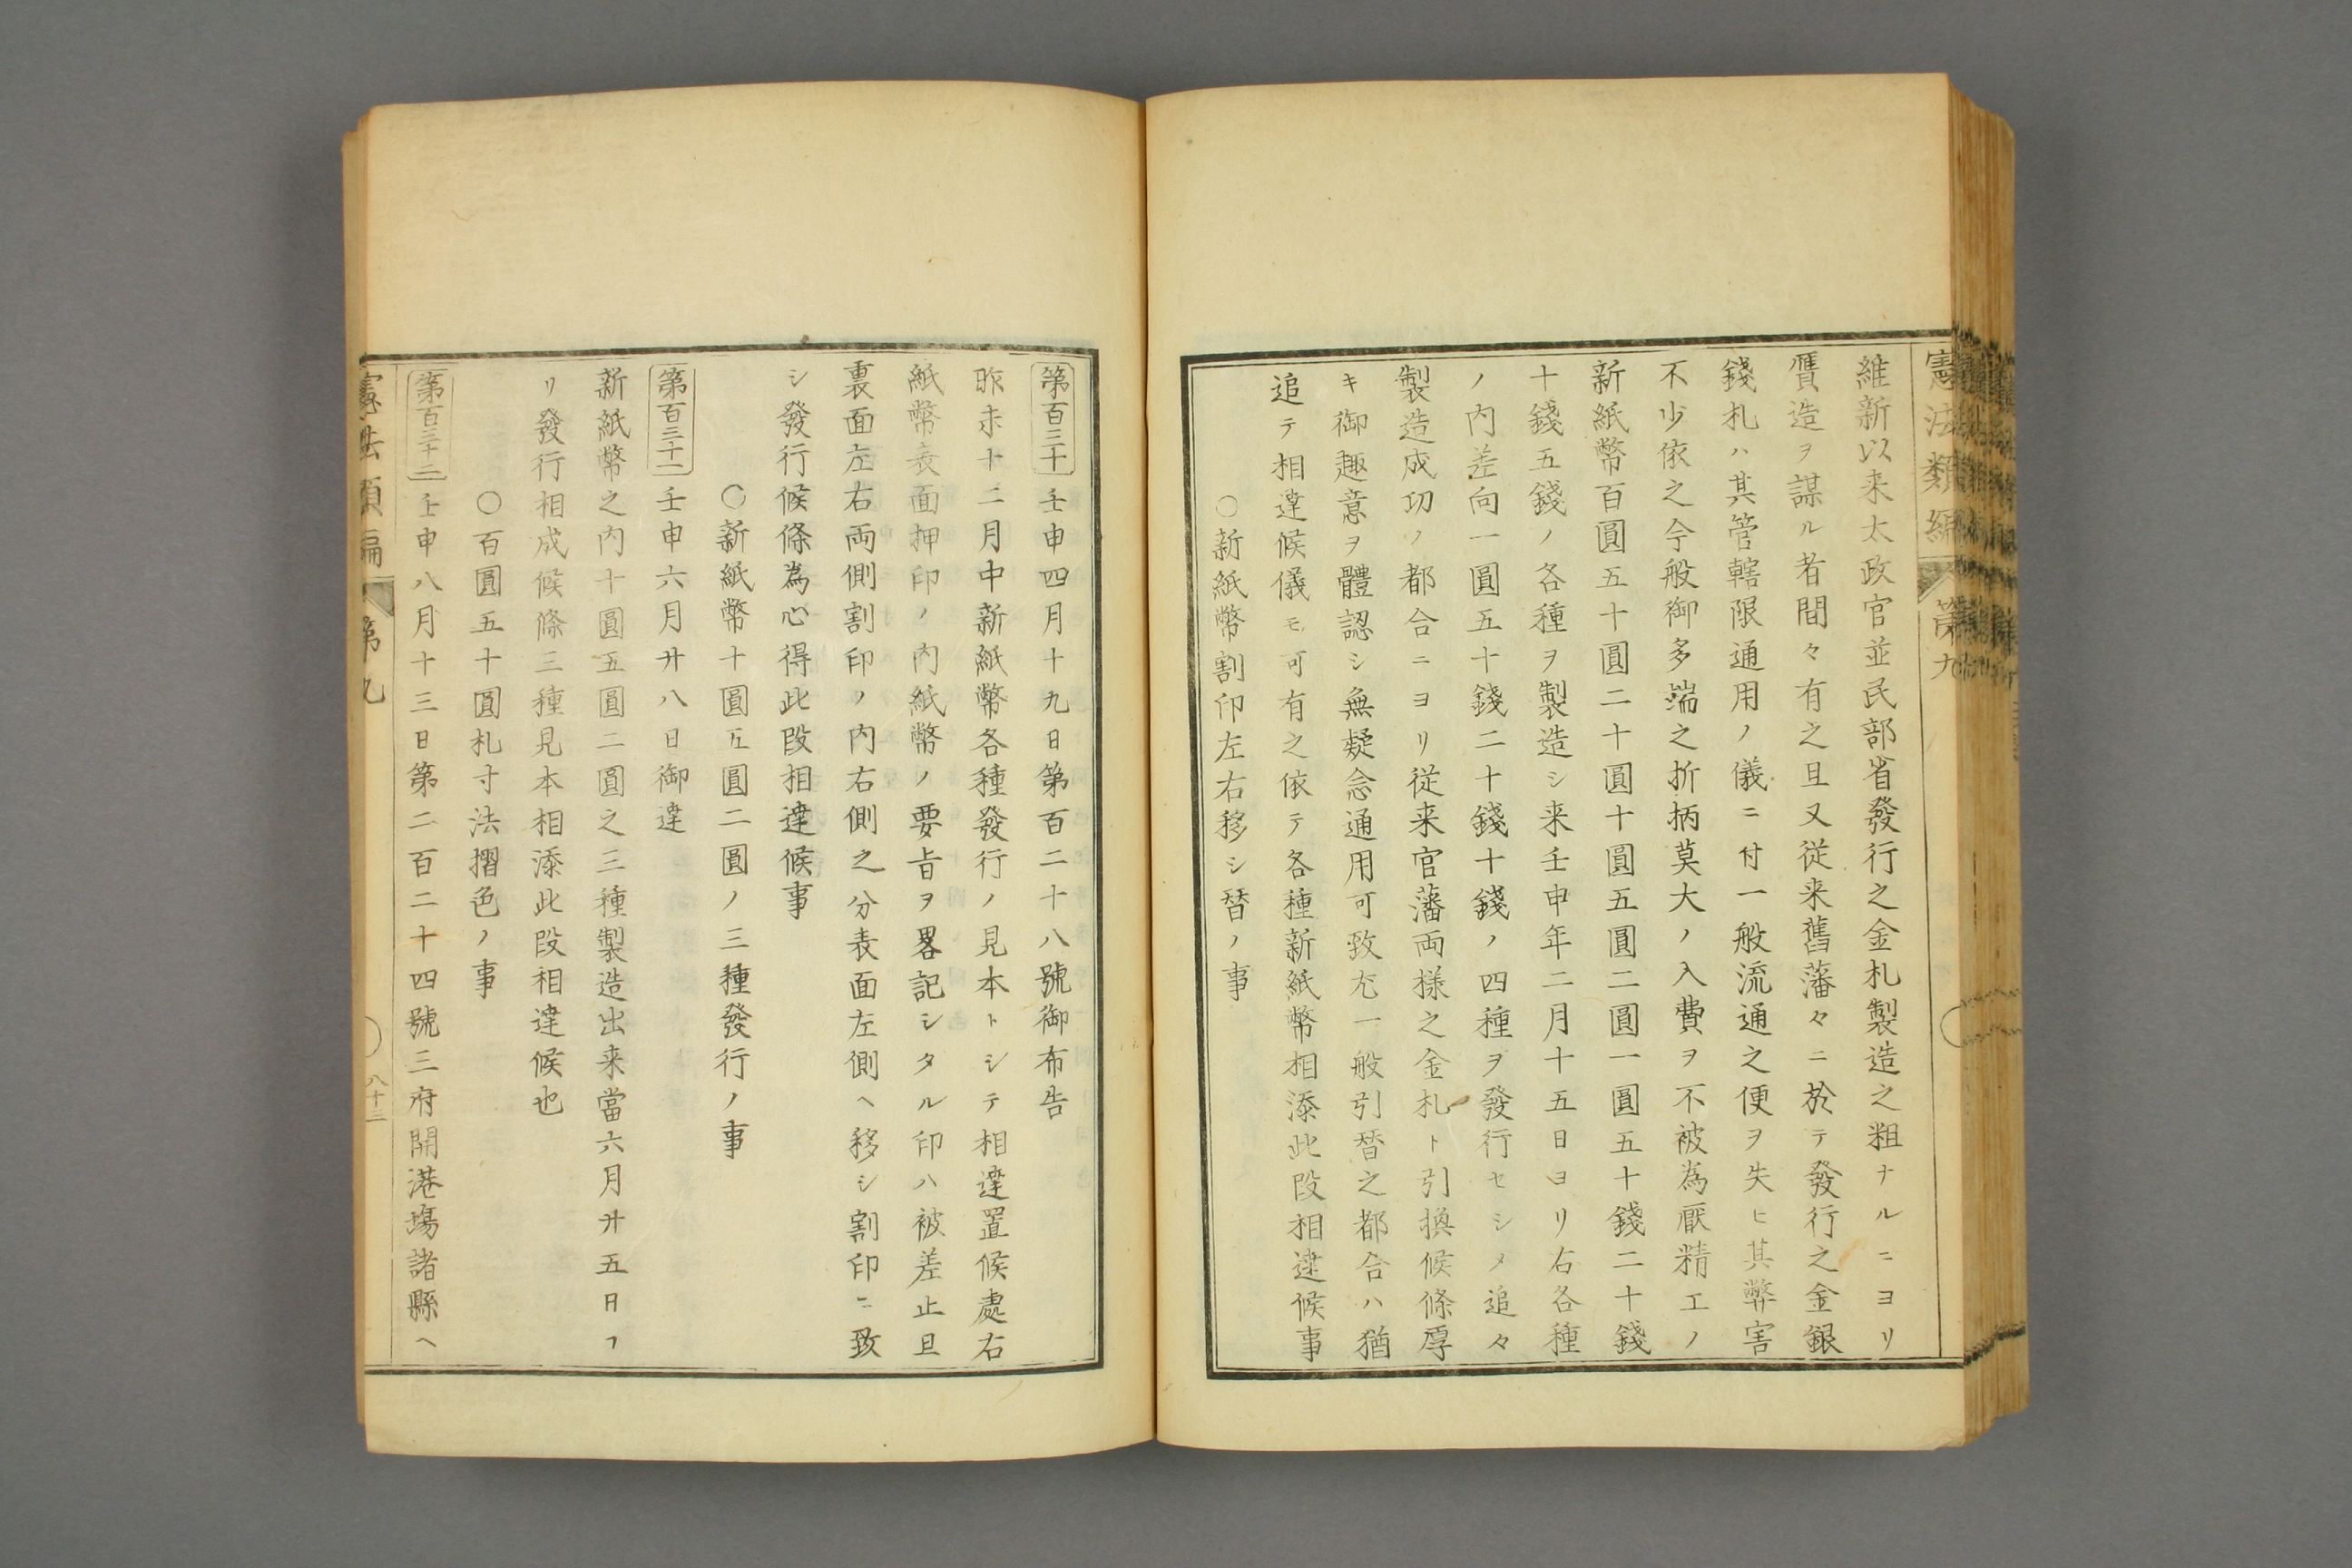 憲法類編 第九
維新以来太政官並民部省發行之金札製造之粗ナルニヨリ
贋造ヲ謀ル者間々有之且又従来舊藩々ニ於テ發行之金銀
錢札ハ其管轄限通用ノ儀ニ付一般流通之便ヲ失ヒ其弊害
不少依之今般御多端之折柄莫大ノ入費ヲ不被為厭精工ノ
新紙幣百圓五十圓二十圓十圓五圓二圓一圓五十錢二十錢
十錢五錢ノ各種ヲ製造シ来壬申年二月十五日ヨリ右各種
ノ内差向一圓五十錢二十錢十錢ノ四種ヲ發行セシメ追々
製造成功ノ都合ニヨリ従来官藩両様之金札ト引換候條厚
キ御趣意ヲ體認シ無疑念通用可致尤一般引替之都合ハ猶
追テ相達候儀モ可有之依テ各種新紙幣相添此段相達候事
○新紙幣割印左右移シ替ノ事
第百三十 壬申四月十九日第百二十八號御布告
昨未十二月中新紙幣各種發行ノ見本トシテ相達置候處右
紙幣表面押印ノ内紙幣ノ要旨ヲ畧記シタル印ハ被差止且
裏面左右両側割印ノ内右側之分表面左側ヘ移シ割印ニ致
シ發行候條為心得此段相達候事
○新紙幣十圓五圓二圓ノ三種發行ノ事
第百三十一 壬申六月廾八日御達
新紙幣之内十圓五圓二圓之三種製造出来當六月廾五日ヨ
リ發行相成候條三種見本相添此段相達候也
○百圓五十圓札寸法摺色ノ事
第百三十二 壬申八月十三日第二百二十四號三府開港場諸縣ヘ
憲法類編 第九 八十三